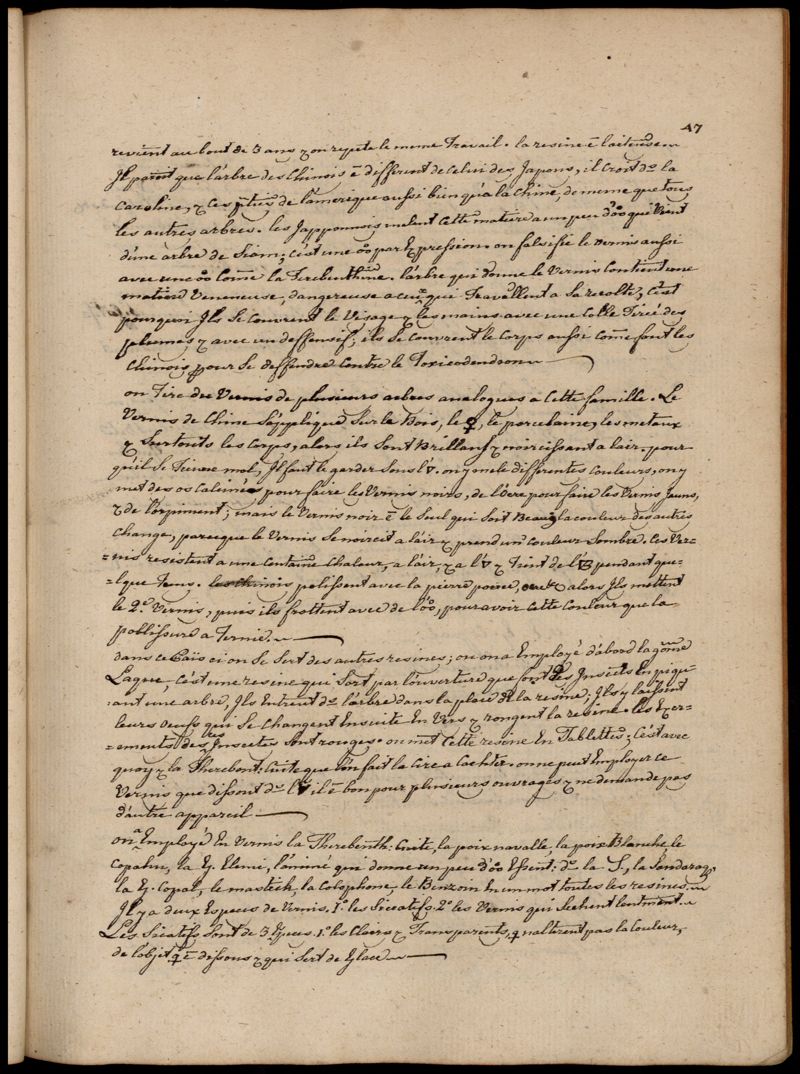 47
revient au bout de 3 ans & on repete le meme Travail. la resine ē laiteuse
Jl paroit que l'arbre des Chinois ē different de Celui des Japons, il Croit da la
Caroline, & Ces ptics de lamerique aussi bien qu'a la Chine, de meme que tous
les autres arbres. les Japponnois melent Cette matiere a un peu d'oo qui Vient
d'une arbre de Siam; C'est une oo par Expression. on falsifie le Vernis aussi
avec une oo Come la Terebenthine. l'arbre qui donne le Vernis Contient une
matiere Veneneuse, dangereuse a Ceux qui Travaillent a Sa recolte, C'est
pourquoi Jls Se Couvrent le Visage & les mains avec une Colle Tirée des
plumes & avec un deffensif; ils Se Couvrent le Corps aussi Come font les
Chinois pour Se deffendre Contre le Toxicodendron
on Tire des Vernis de plusieurs arbres analogues a Cette famille. Le
Vernis de Chine S'applique Sur le Bois, le ♀, le porcelaine, les metaux
& Surtouts les Corps, alors ils Sont Brillans & noircissant a lair. pour
qu'il Se Tienne mol, Jl faut le garder Sous l'▽. on y mele differentes Couleurs, on y
met des os Calcinés pour faire les Vernis noirs, de l'ocre pour faire les Vernis Jaune,
& de l'orpiment; mais le Vernis noir ē le Seul qui Soit Beau, la Couleur des autres
Change, parceque le Vernis Se noircit a lair & prend un Couleur Sombre. Ces Ver=
=nis resistent a une Certaine Chaleur, a l'air, & a l'▽ & Tient de l' pendant que=
=lque Tems. les Chinois polissent avec la pierre ponce, & alors Jls mettent
le 2.e Vernis, puis ils frottent avec de l'oo, pour avoir Cette Couleur que la
pollissure a Ternie.
dans Ce Païs ci on Se Sert des autres resines; on on a Employé d'abord la gome
Laque, C'est une resine qui Sort par l'ouverture que font des Insects En piqu=
=ant une arbre, Jls Entrent da l'arbre dans la place de la resine; Jls y laissent
leurs oeufs qui Se Changent Ensuite En Vers & rongent la resine. les Excer=
=ements des Insectes Sont rouges. on met Cette resine En Tablettes; C'est avec
quoy & la Therebent: Cuite que l'on fait la Cire a Cachter. on ne peut Employer Ce
Vernis que dissout da l' il ē bon pour plusieurs ouvrages & ne demande pas
d'autre appareil
on a Employé En Vernis la Therebenth: Cuite, la poix navalle, la poix Blanche, le
Copahu, la G. Elemi, l'animé qui donne un peu d'oo Essent: da la S, la Sandaraq.
la G. Copal, le mastich, la Colophone, le Benzoin En un mot toutes les resines
Jl y a deux Especes de Vernis. 1.o les Siccatifs 2.o les Vernis qui Sechent lentment.
Les Sicatifs Sont de 3 Especes. 1.o les Clairs & Transparents, q n'alterent pas la Couleur
de l'objet q ē dessous & qui Sert de Glace